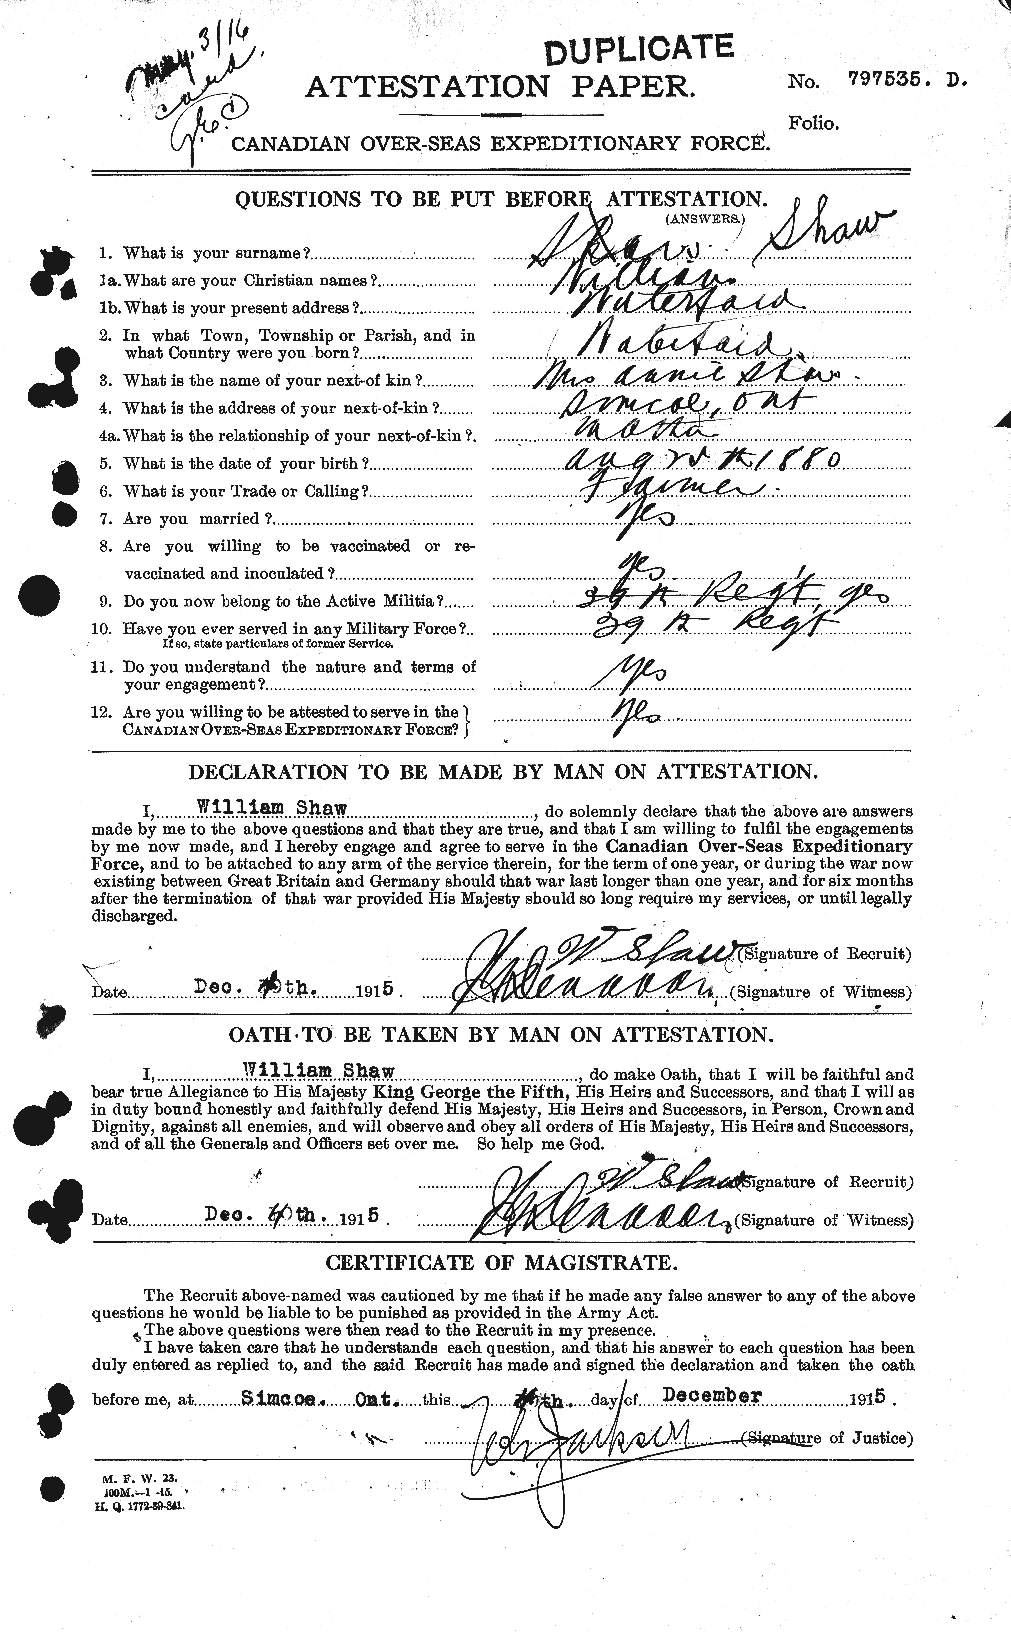 May. 3/16
card
DUPLICATE
ATTESTATION PAPER.
No. 797535. D.
Folio.
CANADIAN OVER-SEAS EXPEDITIONARY FORCE.
QUESTIONS TO BE PUT BEFORE ATTESTATION.
(ANSWERS.)
1. What is your surname? Shaw Shaw
1a. What are your Christian names? William
1b. What is your present address? Waterford
2. In what Town, Township or Parish, and in
what Country were you born? Waterford
3. What is the name of your next-of kin? Mrs Annie Shaw
4. What is the address of your next-of-kin? Simcoe, Ont
4a. What is the relationship of your next-of-kin? Mother
5. What is the date of your birth? Aug th 1880
6. What is your Trade or Calling? Farmer
7. Are you married? Yes
8. Are you willing to be vaccinated or re-
vaccinated and inoculated? yes
9. Do you now belong to the Active Militia? 39th Reg't, yes
10. Have you ever served in any Military Force? 39th Regt
If so, state particulars of former Service.
11. Do you understand the nature and terms of
your engagement? Yes
12. Are you willing to be attested to serve in the
CANADIAN OVER-SEAS EXPEDITIONARY FORCE? } Yes
DECLARATION TO BE MADE BY MAN ON ATTESTATION.
I, William Shaw, do solemnly declare that the above are answers
made by me to the above questions and that they are true, and that I am willing to fulfil the engagements
by me now made, and I hereby engage and agree to serve in the Canadian Over-Seas Expeditionary
Force, and to be attached to any arm of the service therein, for the term of one year, or during the war now
existing between Great Britain and Germany should that war last longer than one year, and for six months
after the termination of that war provided His Majesty should so long require my services, or until legally
discharged.
W Shaw (Signature of Recruit)
Date Dec. th. 1915. (Signature of Witness)
OATH TO BE TAKEN BY MAN ON ATTESTATION.
I, William Shaw, do make Oath, that I will be faithful and
bear true Allegiance to His Majesty King George the Fifth, His Heirs and Successors, and that I will as
in duty bound honestly and faithfully defend His Majesty, His Heirs and Successors, in Person, Crown and
Dignity, against all enemies, and will observe and obey all orders of His Majesty, His Heirs and Successors,
and of all the Generals and Officers set over me. So help me God.
W Shaw (Signature of Recruit)
Date Dec. th. 1915. (Signature of Witness)
CERTIFICATE OF MAGISTRATE.
The Recruit above-named was cautioned by me that if he made any false answer to any of the above
questions he would be liable to be punished as provided in the Army Act.
The above questions were then read to the Recruit in my presence.
I have taken care that he understands each question, and that his answer to each question has been
duly entered as replied to, and the said Recruit has made and signed the declaration and taken the oath
before me, at Simcoe. Ont. this th. day of December 1915.
Jackson (Signature of Justice)
M. F. W. 23.
100M.—1 -15.
H. Q. 1772-39-841.